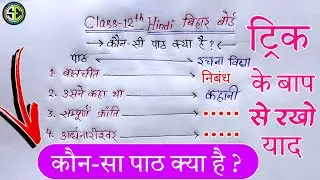 Class-12th Hindi बिहार बोर्ड
→ कौन-सा पाठ क्या है? ←
पाठ रचना विधा
1. बातचीत निबंध
2. उसने कहा था कहानी
3. सम्पूर्ण क्रांति
4. अर्धनारीश्वर
ट्रिक
के बाप
से रखो
याद
कौन-सा पाठ क्या है ?